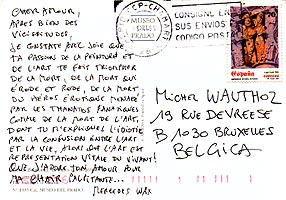 CHER AMOUR,
APRÈS BIEN DES
VICISSITUDES,
JE CONSTATE AVEC JOIE QUE
TA PASSION DE LA PEINTURE ET
DE L'ART TE FAIT TRIOMPHER
DE LA MORT, DE LA MORT QUI
ÉRODE ET RODE, DE LA MORT
DU HÉROS ÉROTIQUE MENACÉ
PAR LE THANATOS FANATIQUE
COMME DE LA MORT DE L'ART,
DONT TU M'EXPLIQUES L'IDIOTIE
PAR LA CONFUSION ENTRE L'ART
ET LA VIE, ALORS QUE L'ART EST
REPRESENTATION VITALE DU VIVANT!
QUE J'ADORE TON AMOUR POUR
MA CHAIR PALPITANTE...
MERCEDES WAX
MUSEO
PRADO
CONSIGNE EN
SUS ENVIOS
CODIGO POST
España
MICHEL WAUTHOZ
19 RUE DEVREESE
B 1030 BRUXELLES
BELGICA
MUSEO DEL PRADO